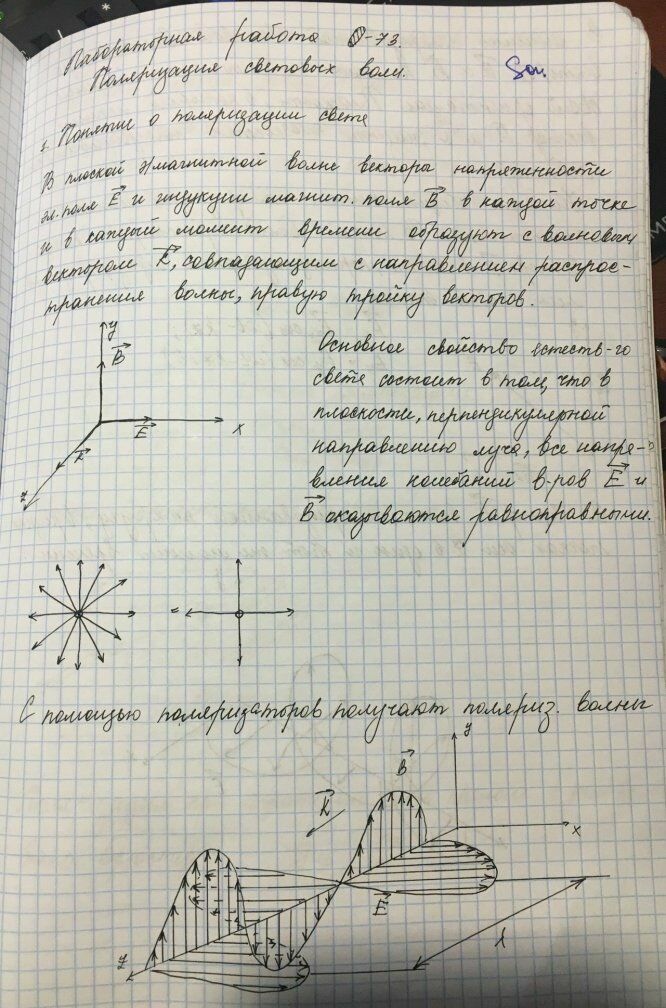 Лабораторная работа О-73.
Поляризация световых волн.
1. Понятие о поляризации света
В плоской э/магнитной волне векторы напряженности
эл. поля E и индукции магнит. поля B в каждой точке
и в каждый момент времени образуют с волновым
вектором K, совпадающим с направлением распрос-
транения волны, правую тройку векторов.
y
B
E
x
K
z
Основное свойство естеств-го
света состоит в том, что в
плоскости, перпендикулярной
направлению луча, все напра-
вления колебаний в-ров E и
B оказываются равноправными.
=
С помощью поляризаторов получают поляриз. волны
y
B
K
x
E
λ
z